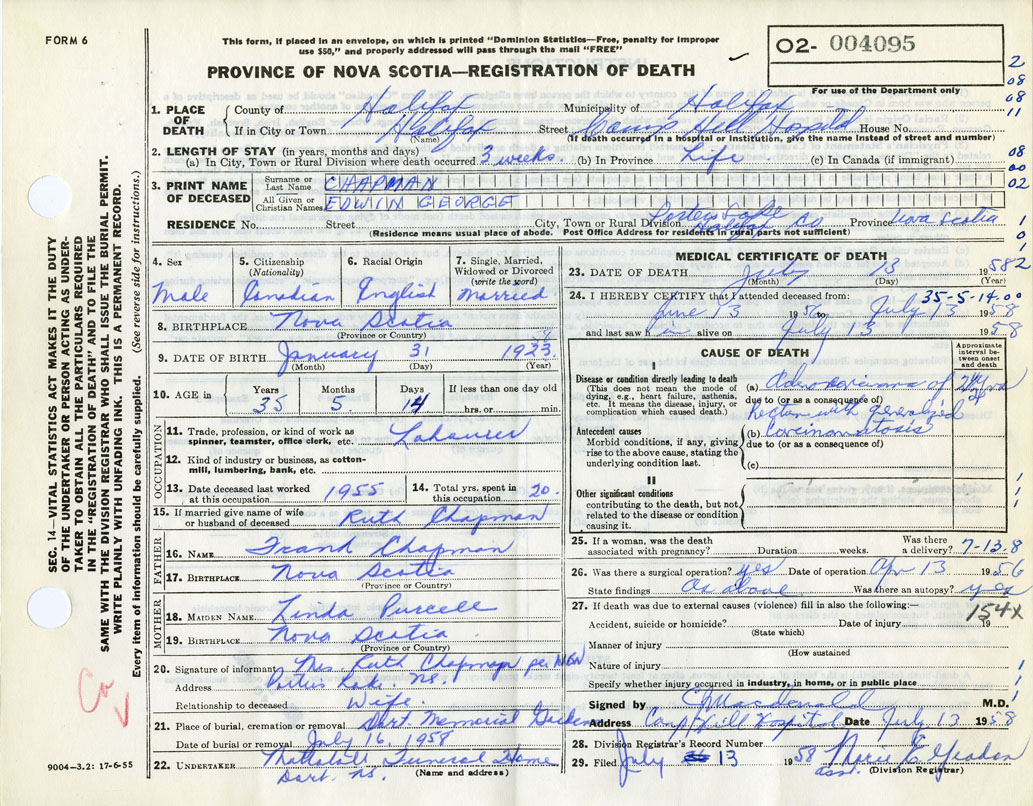 FORM 6
This form, if placed in an envelope, on which is printed "Dominion Statistics—Free, penalty for improper
use $50," and properly addressed will pass through the mail "FREE"
PROVINCE OF NOVA SCOTIA—REGISTRATION OF DEATH
02- 004095
For use of the Department only
2
08
08
11
08
00
02
1
0
1
1. PLACE OF DEATH
County of Halifax Municipality of Halifax
If in City or Town Halifax Street Camp Hill Hospital House No.
(Name) (If death occurred in a hospital or institution, give the name instead of street and number)
2. LENGTH OF STAY (in years, months and days)
(a) In City, Town or Rural Division where death occurred 3 weeks. (b) In Province Life (c) In Canada (if immigrant)
3. PRINT NAME OF DECEASED
Surname or Last Name CHAPMAN
All Given or Christian Names EDWIN GEORGE
RESIDENCE No. Street City, Town or Rural Division Porters Lake Halifax Co Province Nova Scotia
(Residence means usual place of abode. Post Office Address for residents in rural parts not sufficient)
SEC. 14—VITAL STATISTICS ACT MAKES IT THE DUTY
OF THE UNDERTAKER OR PERSON ACTING AS UNDER-
TAKER TO OBTAIN ALL THE PARTICULARS REQUIRED
IN THE "REGISTRATION OF DEATH" AND TO FILE THE
SAME WITH THE DIVISION REGISTRAR WHO SHALL ISSUE THE BURIAL PERMIT.
WRITE PLAINLY WITH UNFADING INK. THIS IS A PERMANENT RECORD.
Every item of information should be carefully supplied. (See reverse side for instructions.)
4. Sex
Male
5. Citizenship
(Nationality)
Canadian
6. Racial Origin
English
7. Single, Married,
Widowed or Divorced
(write the word)
Married
8. BIRTHPLACE Nova Scotia
(Province or Country)
9. DATE OF BIRTH January 31 1923.
(Month) (Day) (Year)
10. AGE in Years Months Days If less than one day old
35 5 14 hrs. or min.
OCCUPATION
11. Trade, profession, or kind of work as
spinner, teamster, office clerk, etc. Labourer
12. Kind of industry or business, as cotton-
mill, lumbering, bank, etc.
13. Date deceased last worked
at this occupation 1955
14. Total yrs. spent in
this occupation 20.
15. If married give name of wife
or husband of deceased Ruth Chapman
FATHER
16. NAME Frank Chapman
17. BIRTHPLACE Nova Scotia
(Province or Country)
MOTHER
18. MAIDEN NAME Linda Purcell
19. BIRTHPLACE Nova Scotia
(Province or Country)
20. Signature of informant Mrs Ruth Chapman per
Address Porters Lake. N.S.
Relationship to deceased Wife.
21. Place of burial, cremation or removal Dart. Memorial Gardens
Date of burial or removal July 16, 1958
22. UNDERTAKER Mattatall Funeral Home
Dart. N.S. (Name and address)
9004—3.2: 17-6-55
Co
MEDICAL CERTIFICATE OF DEATH
23. DATE OF DEATH July 13 1958 2
(Month) (Day) (Year)
24. I HEREBY CERTIFY that I attended deceased from: 35-5-14.00
June 13 1956 to July 13 1958
and last saw him alive on July 13 1958
CAUSE OF DEATH
Approximate
interval be-
tween onset
and death
I
Disease or condition directly leading to death
(This does not mean the mode of
dying, e.g., heart failure, asthenia,
etc. It means the disease, injury, or
complication which caused death.)
(a) Adenocarcinoma of
due to (or as a consequence of)
Rectum with generalized
Antecedent causes
Morbid conditions, if any, giving
rise to the above cause, stating the
underlying condition last.
(b) Carcinomatosis
due to (or as a consequence of)
(c)
II
Other significant conditions
contributing to the death, but not
related to the disease or condition
causing it.
25. If a woman, was the death
associated with pregnancy? Duration weeks. Was there
a delivery? 7-13.8
26. Was there a surgical operation? yes Date of operation Apr 13 1956
State findings As above Was there an autopsy? yes
27. If death was due to external causes (violence) fill in also the following:—
154X
Accident, suicide or homicide? Date of injury 19
(State which)
Manner of injury
(How sustained
Nature of injury
Specify whether injury occurred in industry, in home, or in public place
Signed by C Macdonald M.D.
Address Camp Hill Hospital Date July 13 1958
28. Division Registrar's Record Number
29. Filed July 13 1958 Marie E.
asst. (Division Registrar)